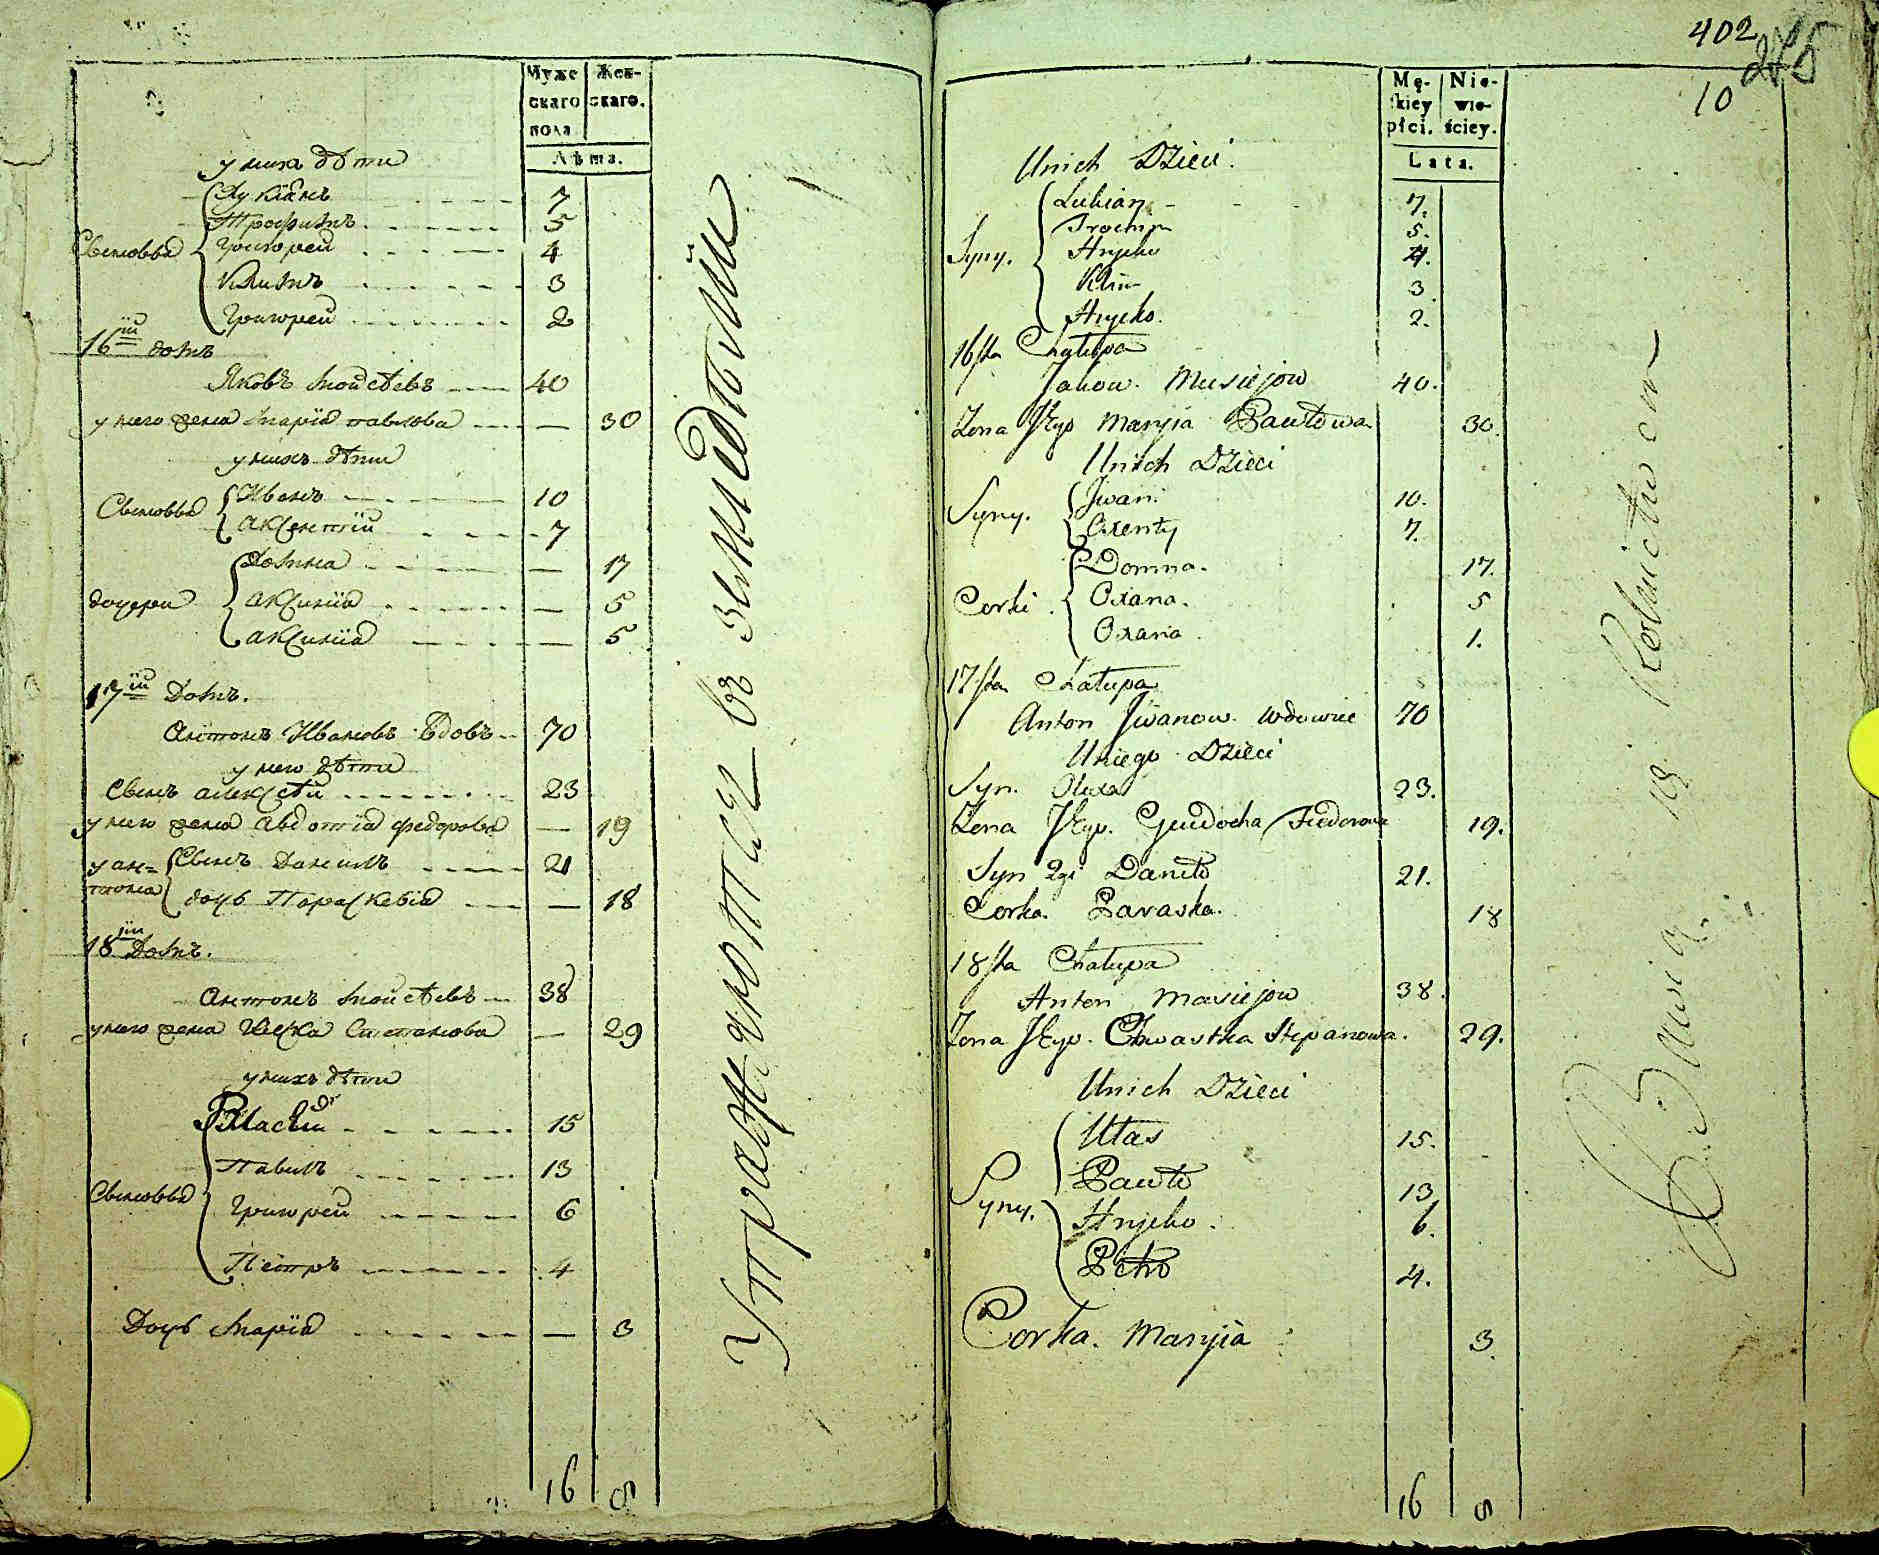 Муже
скаго
пола
Жен-
скаго.
Лѣта.
у нихъ дѣти
Сыновья
Лукіанъ 7
Трофимъ 5
Григорей 4
Климъ 3
Григорей 2
16ій домъ
Яковъ Моисѣевъ 40
у него жена Марія Павлова — 30
у нихъ дѣти
Сыновья
Иванъ 10
Аксентій 7
дочери
Домна — 17
Аксинія — 5
Аксинія — 5
17ій Домъ.
Антонъ Ивановъ Вдовъ 70
у него дѣти
Сынъ Алексѣй 23
у него жена Авдотія Федорова — 19
у Ан=
тона
Сынъ Данилъ 21
дочь Параскевія — 18
18ій Домъ.
Антонъ Моисѣевъ 38
у него жена Степанова — 29
у нихъ дѣти
Сыновья
Власій 15
Павилъ 13
Григорей 6
Пётръ 4
Дочь Марія — 3
16 8
Упражняются въ земледѣліи
402
275
10
Mę-
skiey
płci.
Nie-
wie-
ściey.
Lata.
Unich Dzieci.
Syny.
Lukian 7.
Trochim 5.
Hryćko 4.
Klim 3
Hryćko. 2.
16sta Chałupa
Jakow Musiejow 40.
Zona Jego Maryia Pawłowa 30.
Unich Dzieci
Syny.
Jwan. 10.
Oxenty 7.
Corki.
Domna. 17.
Oxana. 5
Oxana 1.
17sta Chałupa
Anton Jwanow wdowiec 70
Uniego Dzieci
Syn. Olexa 23.
Zona Jego. Gaudocha Fiedorowa 19.
Syn 2gi Daniło 21.
Corka. Paraska. 18
18sta Chałupa
Anton Mosiejow 38.
Zona Jego. Chwastka Stepanowa. 29.
Unich Dzieci
Syny.
Ułas 15.
Pawło 13
Hryćko. 6.
Petro 4.
Corka. Maryia 3.
16 8
Bawią się Rolnictwem